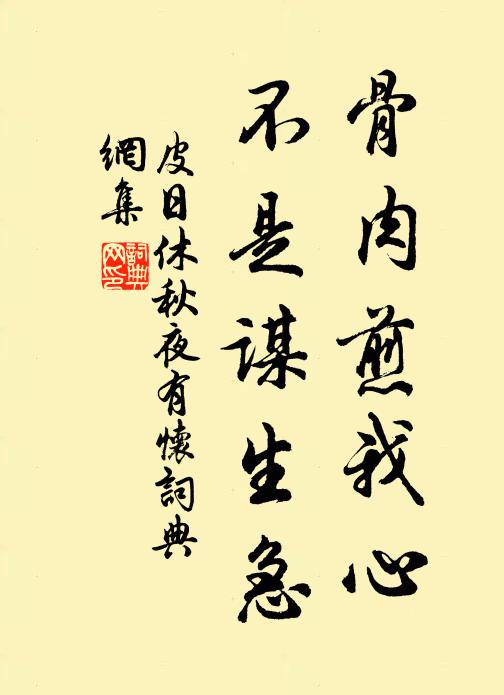 骨肉煎我心
不是謀生急
皮日休秋夜有懷詞典
網集
詞典
网印